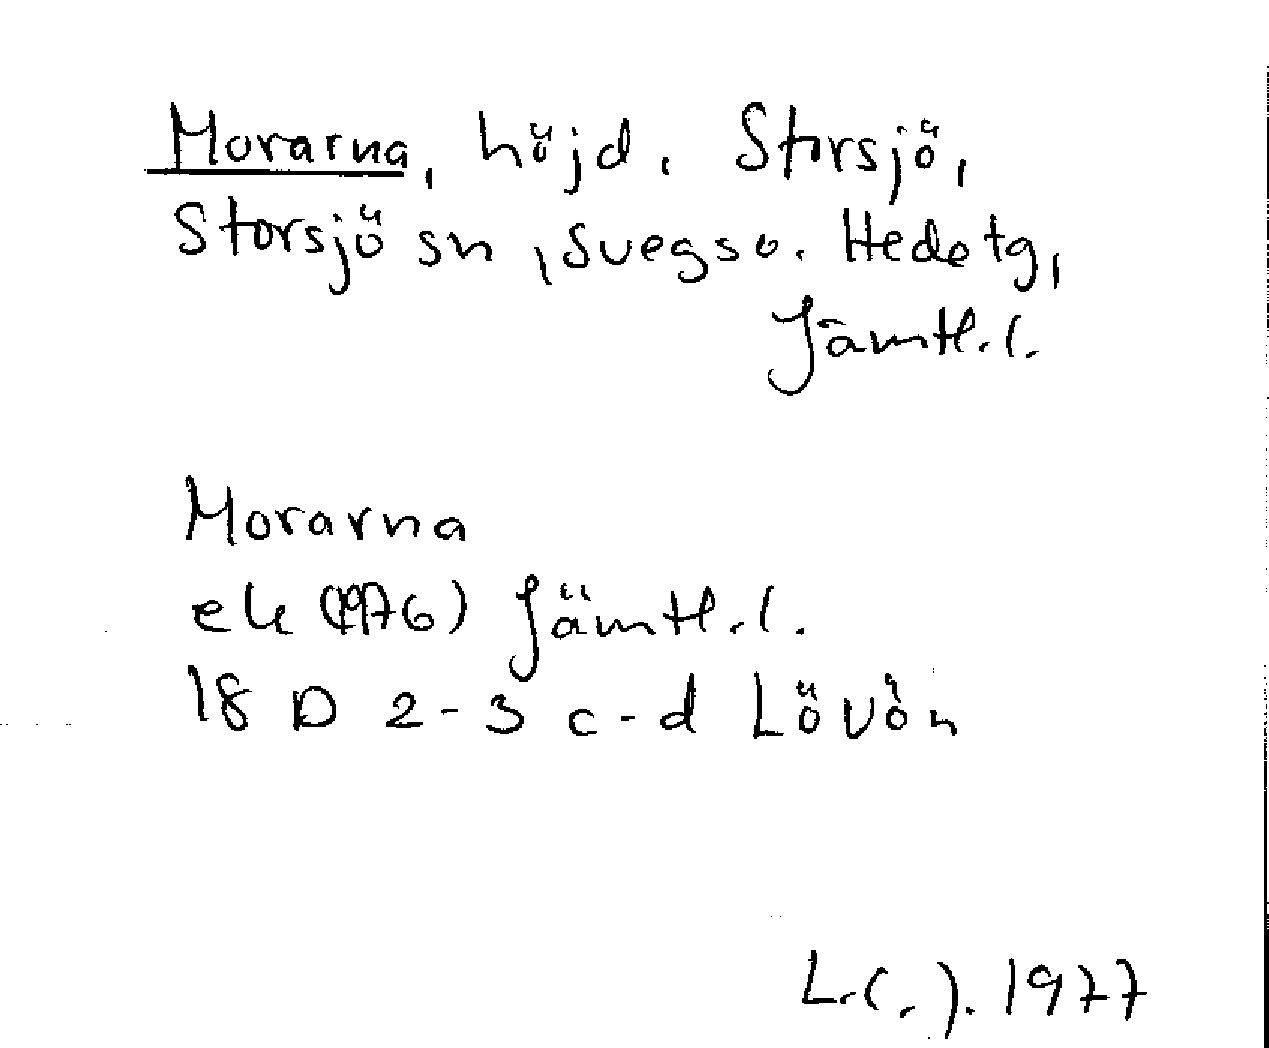 Morarna, höjd. Storsjö,
Storsjö sn, Svegs o. Hede tg,
Jämtl. l.
Morarna
ek (1976) Jämtl. l.
18 D 2-3 c-d Lövön
1977